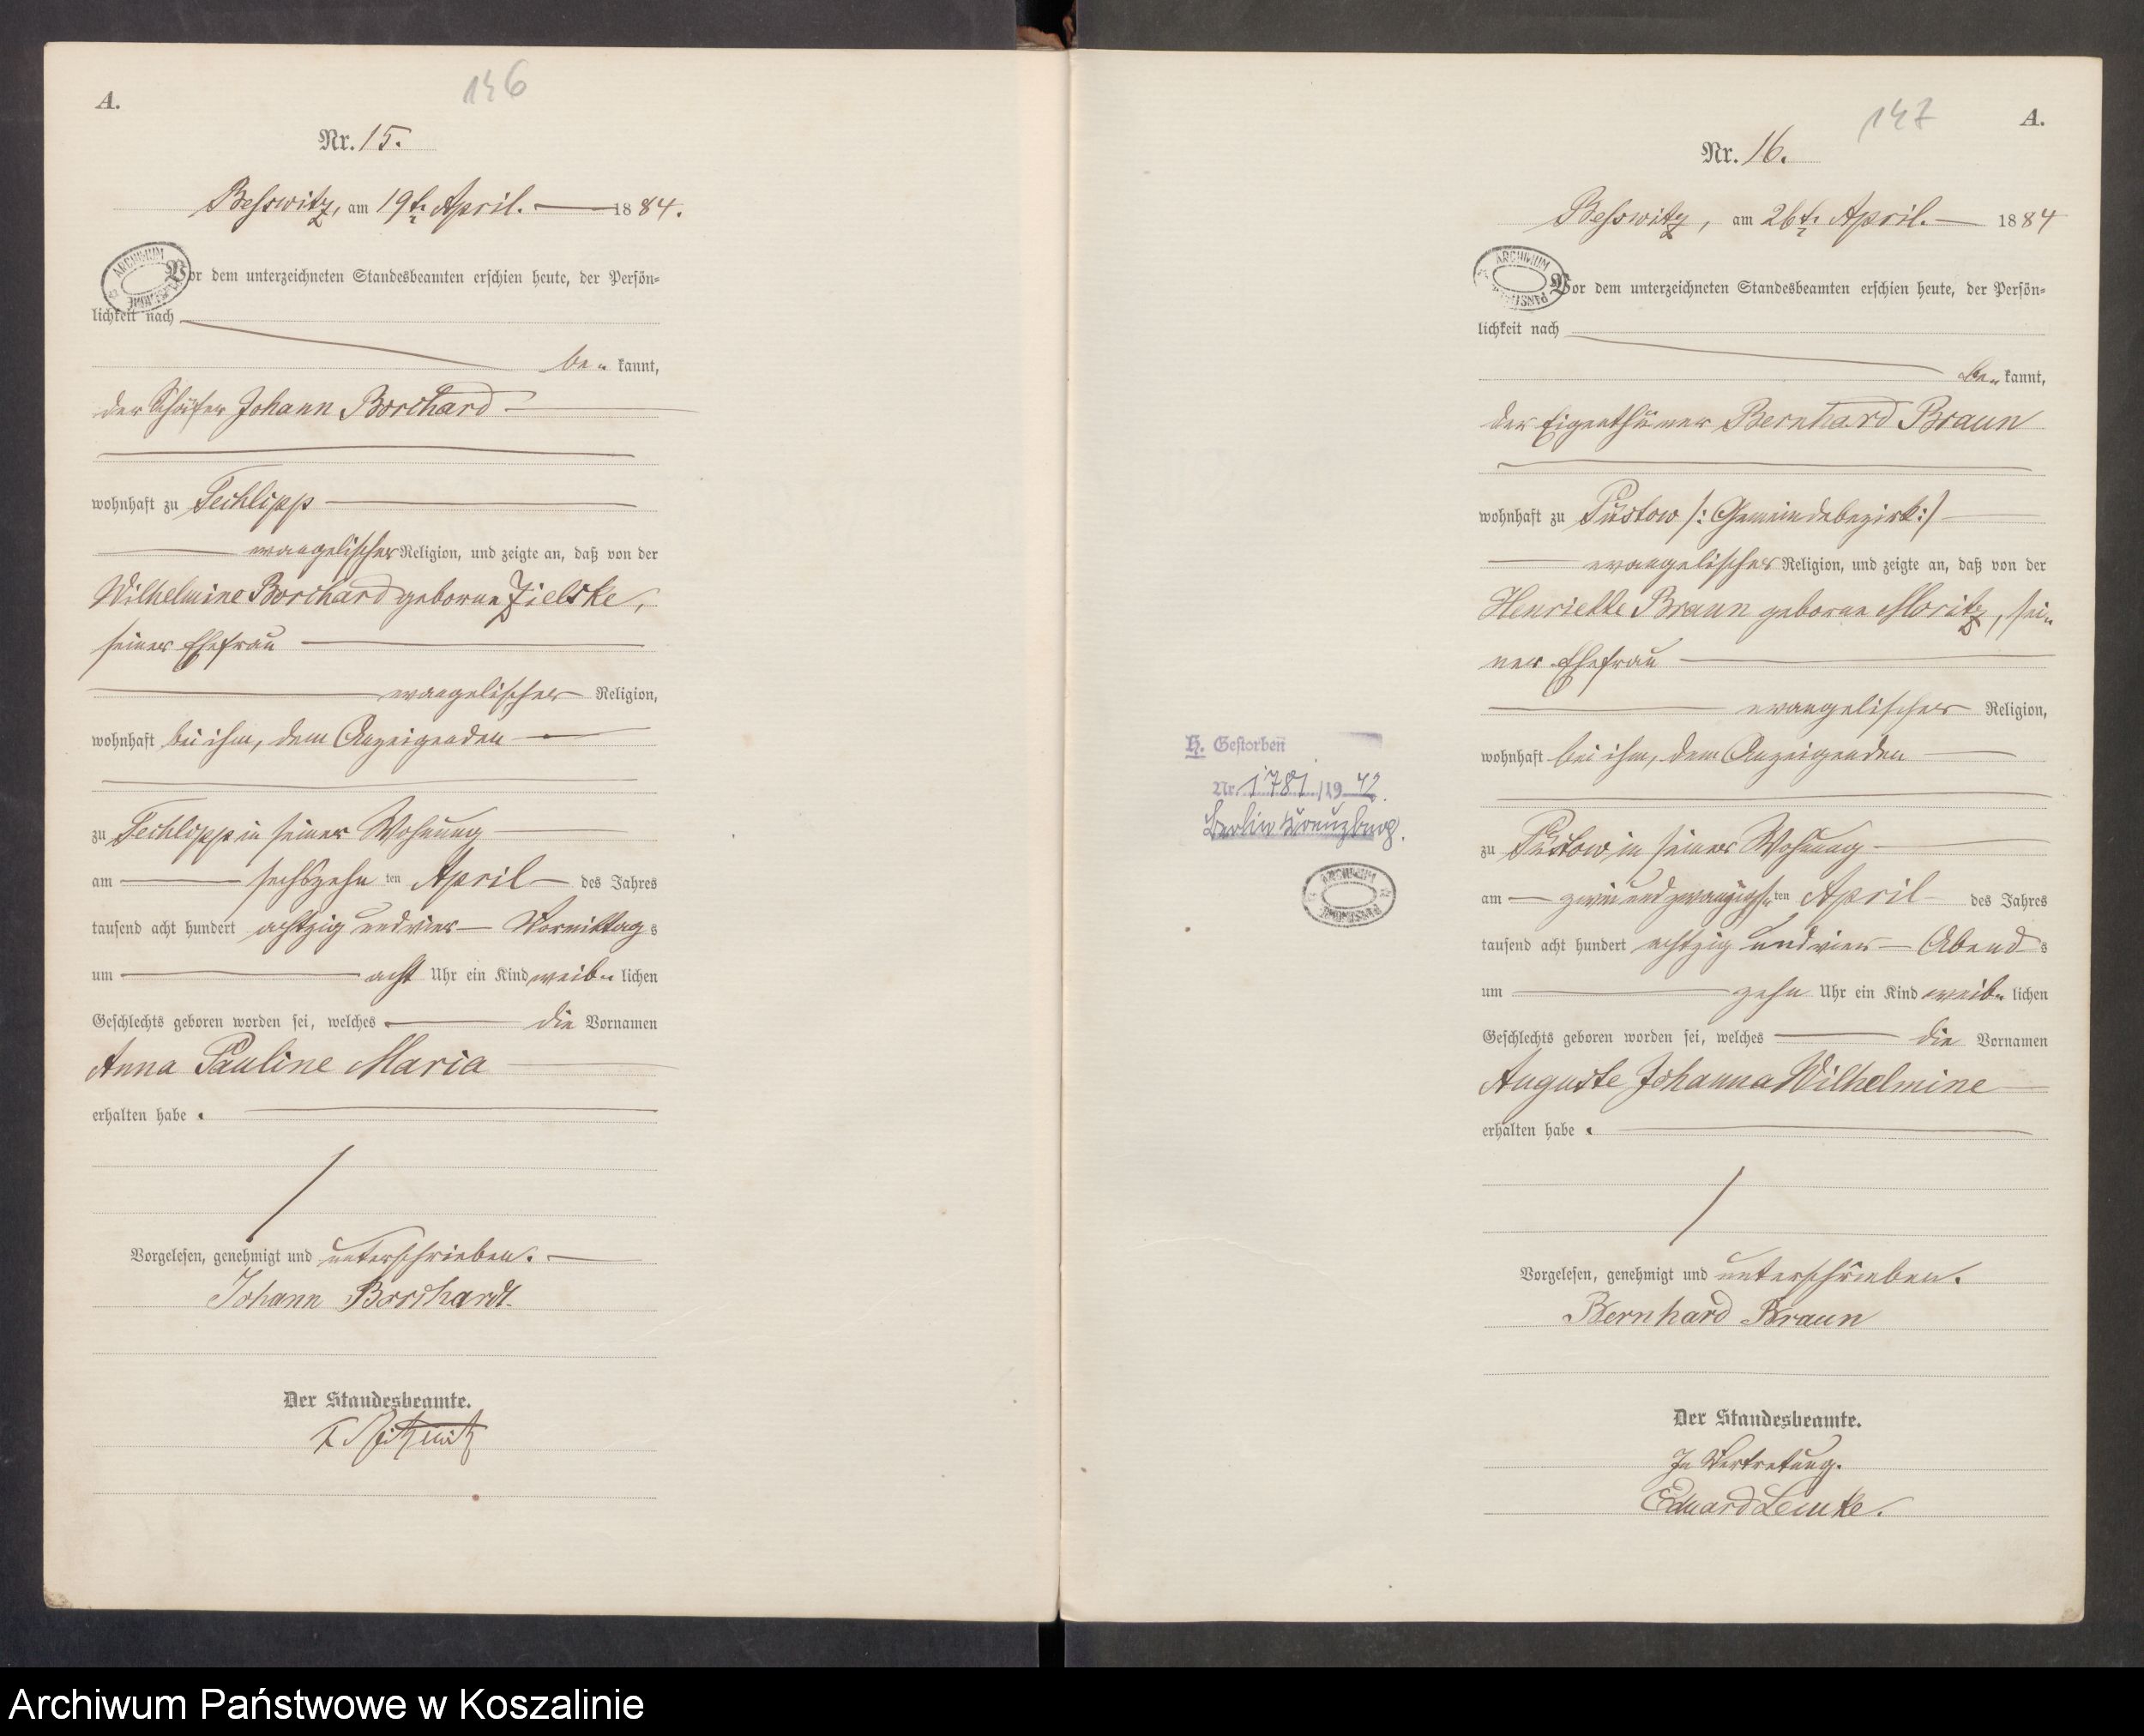 146
A.
Nr. 15.
Besswitz, am 19t. April. 1884.
Vor dem unterzeichneten Standesbeamten erschien heute, der Persön=
lichkeit nach
be= kannt,
der Schäfer Johann Borchard
wohnhaft zu Techlipp
evangelischer Religion, und zeigte an, daß von der
Wilhelmine Borchard geborne Zielske,
seiner Ehefrau
evangelischer Religion,
wohnhaft bei ihm, dem Anzeigenden
zu Techlipp in seiner Wohnung
am sechszehnten April des Jahres
tausend acht hundert achtzig und vier Vormittags
um acht Uhr ein Kind weib= lichen
Geschlechts geboren worden sei, welches die Vornamen
Anna Pauline Maria
erhalten habe.
Vorgelesen, genehmigt und unterschrieben.
Johann Borchardt.
Der Standesbeamte.
147
A.
Nr. 16.
Besswitz, am 26t. April. 1884
Vor dem unterzeichneten Standesbeamten erschien heute, der Persön=
lichkeit nach
be= kannt,
der Eigenthümer Bernhard Braun
wohnhaft zu Püstow /: Gemeindebezirk :/
evangelischer Religion, und zeigte an, daß von der
Henriette Braun geborne Moritz, sei=
ner Ehefrau
evangelischer Religion,
wohnhaft bei ihm, dem Anzeigenden
zu Püstow in seiner Wohnung
am zwei und zwanzigsten April des Jahres
tausend acht hundert achtzig und vier Abends
um zehn Uhr ein Kind weib= lichen
Geschlechts geboren worden sei, welches die Vornamen
Auguste Johanna Wilhelmine
erhalten habe.
Vorgelesen, genehmigt und unterschrieben.
Bernhard Braun
Der Standesbeamte.
In Vertretung.
Eduard Lemke.
H. Gestorben
Nr. 1781/1942.
Berlin Kreuzberg.
ARCHIWUM
Archiwum Państwowe w Koszalinie